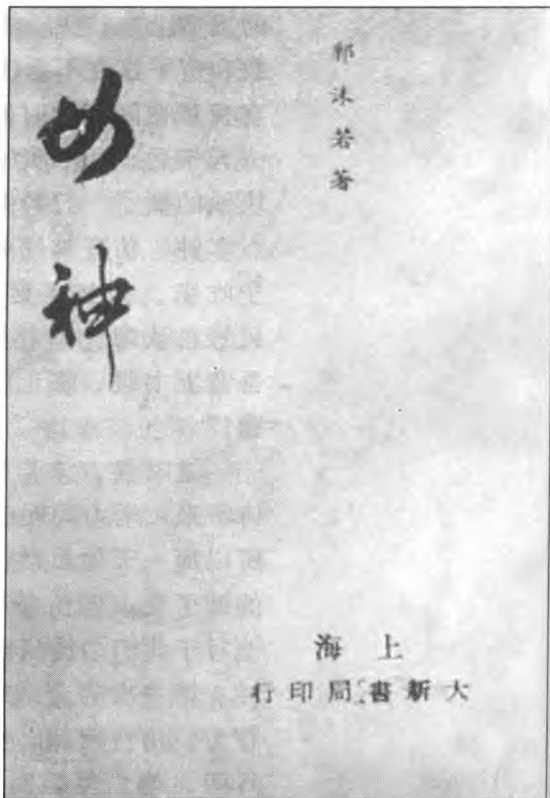 女神
郭沫若著
上海
大新書局印行